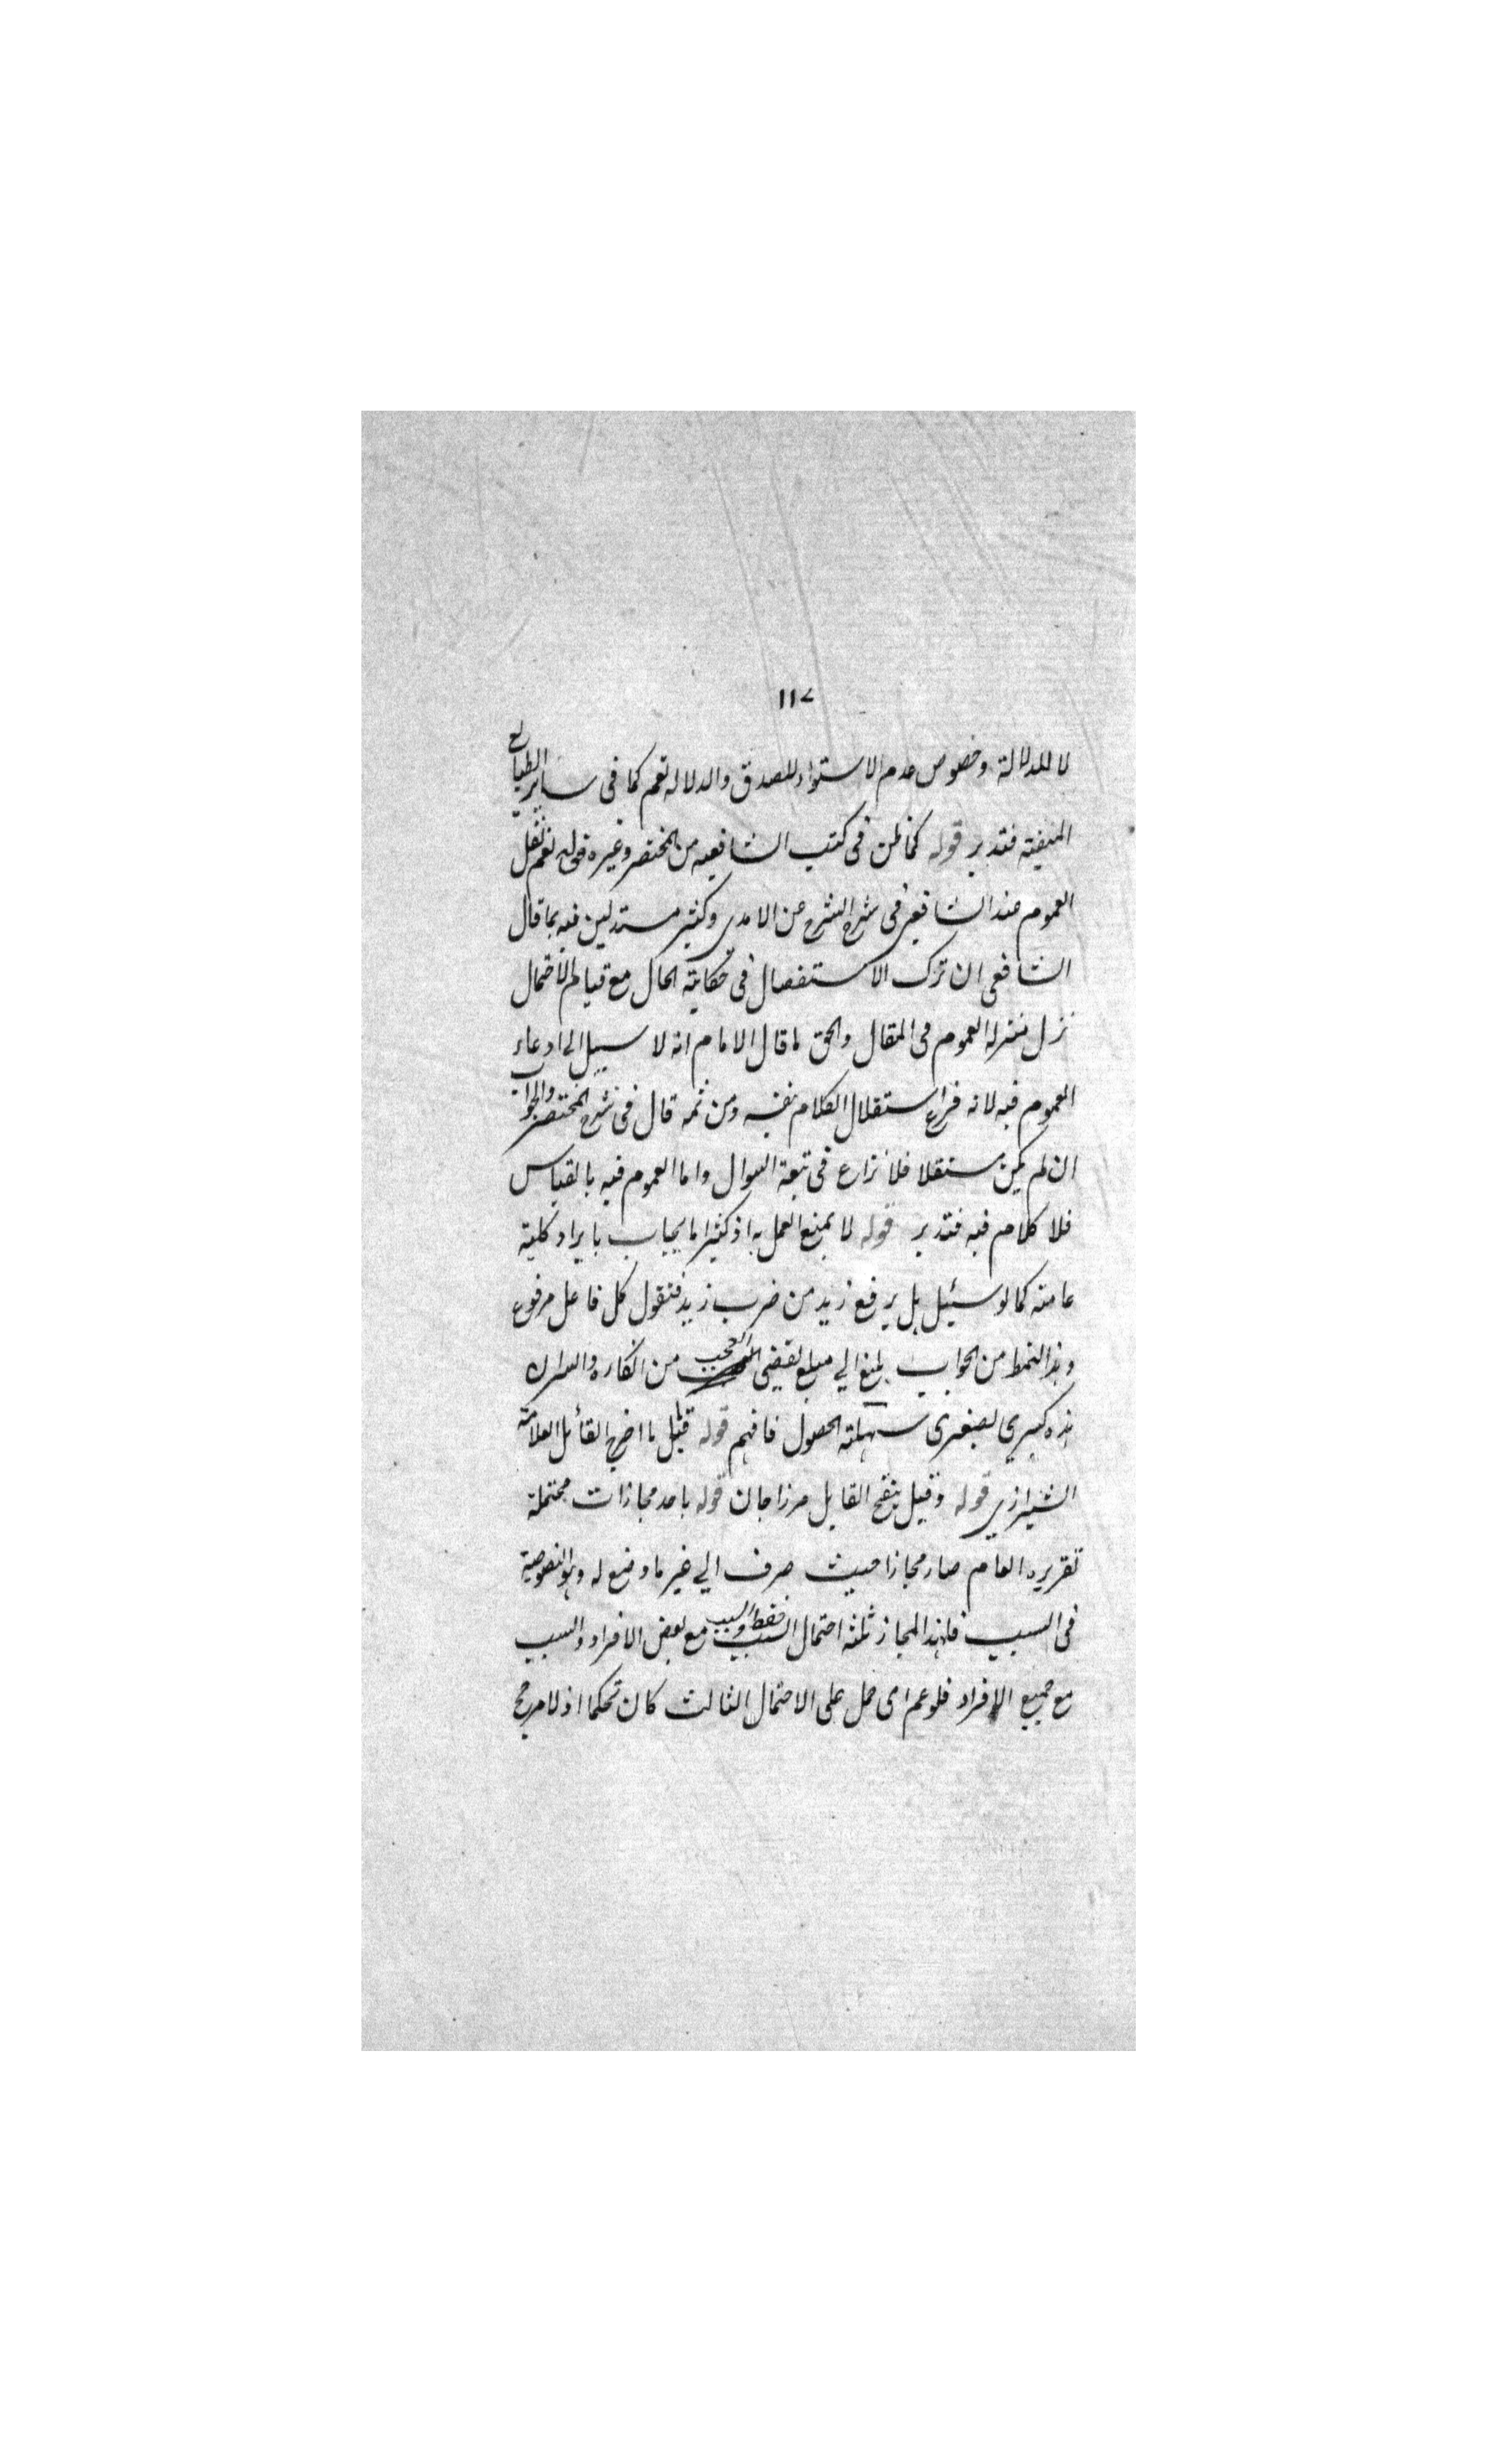 ١١٧
لا للدلالة وخصوص عدم الاستواء للصدق والدلاله نعم كما فى ساير الطبايع
المنفيته فتدبر قوله كما ظن فى كتب الشافعيه من المختصر وغيره قوله نعم نقل
العموم عند الشافعى فى شرح الشرح عن الامدى وكثير مستدلين فيه بما قال
الشافعى ان ترك الاستفصال فى حكاية الحال مع قيام الاحتمال
نزل منزلة العموم فى المقال والحق ما قال الامام انه لا سبيل الى ادعاء
العموم فيه لانه فرع استقلال الكلام بنفسه ومن ثمه قال فى شرح المختصر والجواب
ان لم يكن مستقلا فلا نزاع فى تبعة السوال واما العموم فيه بالقياس
فلا كلام فيه فتدبر قوله لا يمنع العمل به اذ كثيرا ما يجاب بايراد كلية
عامته كما لو سئيل هل يرفع زيد من ضرب زيد فتقول كل فاعل مرفوع
وهذا النمط من الجواب بلغ الي مبلغ يقضى العجب من انكاره والسر ان
هذه كبرى لصغرى سهلة الحصول فافهم قوله قيل ما اضر القائل العلامة
الشيرازي قوله وقيل ينقح القايل مرزاجان قوله باحد مجازات محتملة
تقريره العام صار مجازا حيث صرف الي غير ما وضع له وهو النصوصية
فى السبب فلهذا المجاز ثلثه احتمال السبب فقط والسبب مع بعض الافراد والسبب
مع جميع الافراد فلو عم اى حمل على الاحتمال الثالث كان تحكما اذ لا مرجح